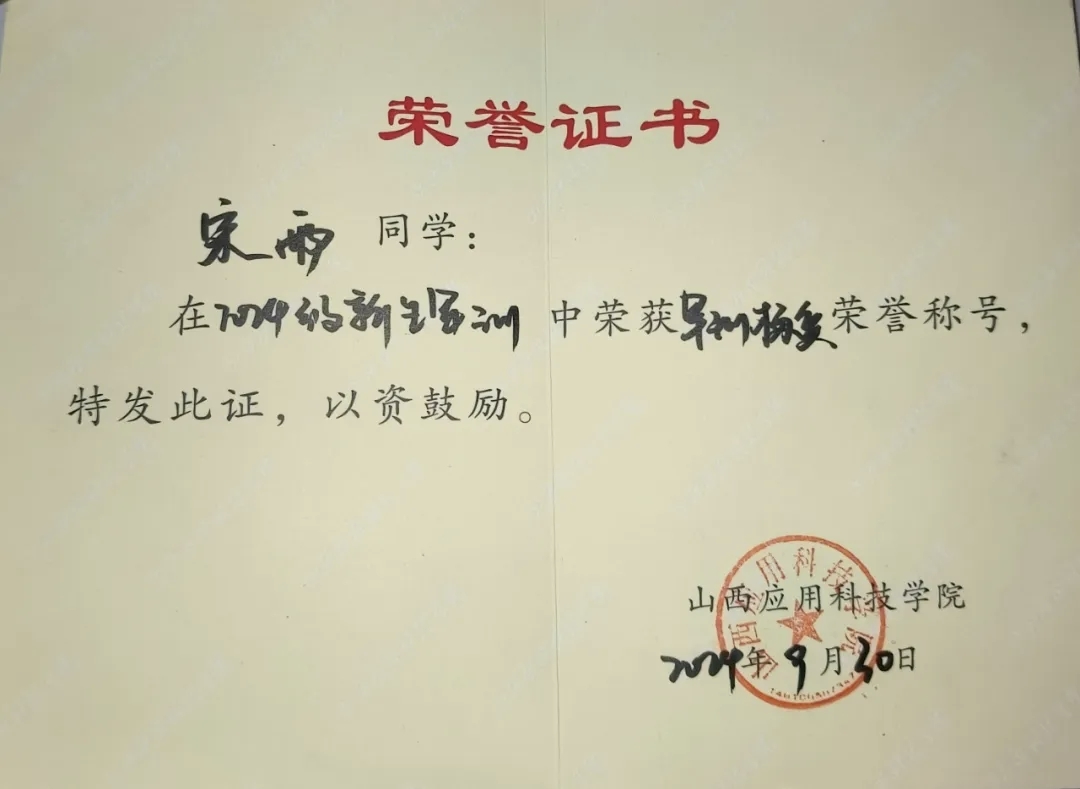 荣誉证书
宋雨 同学：
在2024级新生军训 中荣获军训标兵荣誉称号，
特发此证，以资鼓励。
山西应用科技学院
2024年9月30日
山西应用科技学院